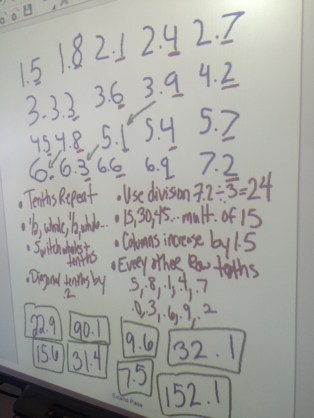 1.5 1.8 2.1 2.4 2.7
3. 3.3 3.6 3.9 4.2
4.5 4.8 5.1 5.4 5.7
6. 6.3 6.6 6.9 7.2
• Tenths Repeat
• ½, whole, ½, whole...
• Switch wholes + tenths
• Diagonal tenths by .2
• Use division 7.2 ÷ .3 = 24
• 15, 30, 45... mult. of 15
• Columns increase by 1.5
• Every other Row tenths
5, .8, .1, .4, .7
.0, .3, .6, .9, .2
22.9 90.1
15.6 31.4
9.6 32.1
7.5 152.1